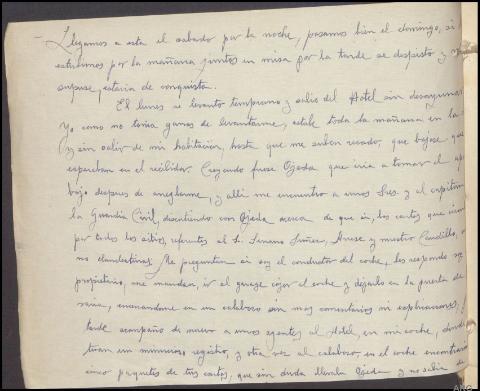 - Llegamos a esta el sabado por la noche, pasamos bien el domingo, si
estuvimos por la mañana juntos en misa por la tarde se despisto y
supuse, estaria de conquista.
El lunes se levanto temprano y salio del Hotel sin desayunar
Yo como no tenia ganas de levantarme, estube toda la mañana en la
y sin salir de mi habitación, hasta que me suben recado, que bajase que
esperaban en el recibidor. Creyendo fuese Ojeda que iria a tomar el
bajo despues de arreglarme, y alli me encuentro a unos Sres. y al capitán
la Guardia Civil, discutiendo con Ojeda acerca de que si, las cartas que
por todos los sitios, referentes al S. Serrano Suñer, Arrese y nuestro Caudillo,
no clandestinas. Me preguntan si soy el conductor del coche, les respondo
propietario, me mandan, ir al garage cojer el coche y dejarlo en la puerta de
encerrandome en un calabozo sin mas comentarios ni explicaciones,
tarde acompaño de nuevo a unos agentes al Hotel, en mi coche,
un minucioso registro, y otra vez al calabozo, en el coche encontraron
cinco paquetes de tus cartas, que sin duda llevaba Ojeda y no sabia